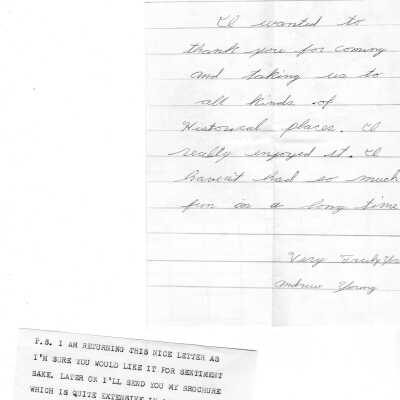 I wanted to
thank you for coming
and taking us to
all kinds of
Historical places. I
really enjoyed it. I
haven't had so much
fun in a long time
Very Truly
Andrew Young
P.S. I AM RETURNING THIS NICE LETTER AS
I'M SURE YOU WOULD LIKE IT FOR SENTIMENT
SAKE. LATER ON I'LL SEND YOU MY BROCHURE
WHICH IS QUITE EXTENSIVE